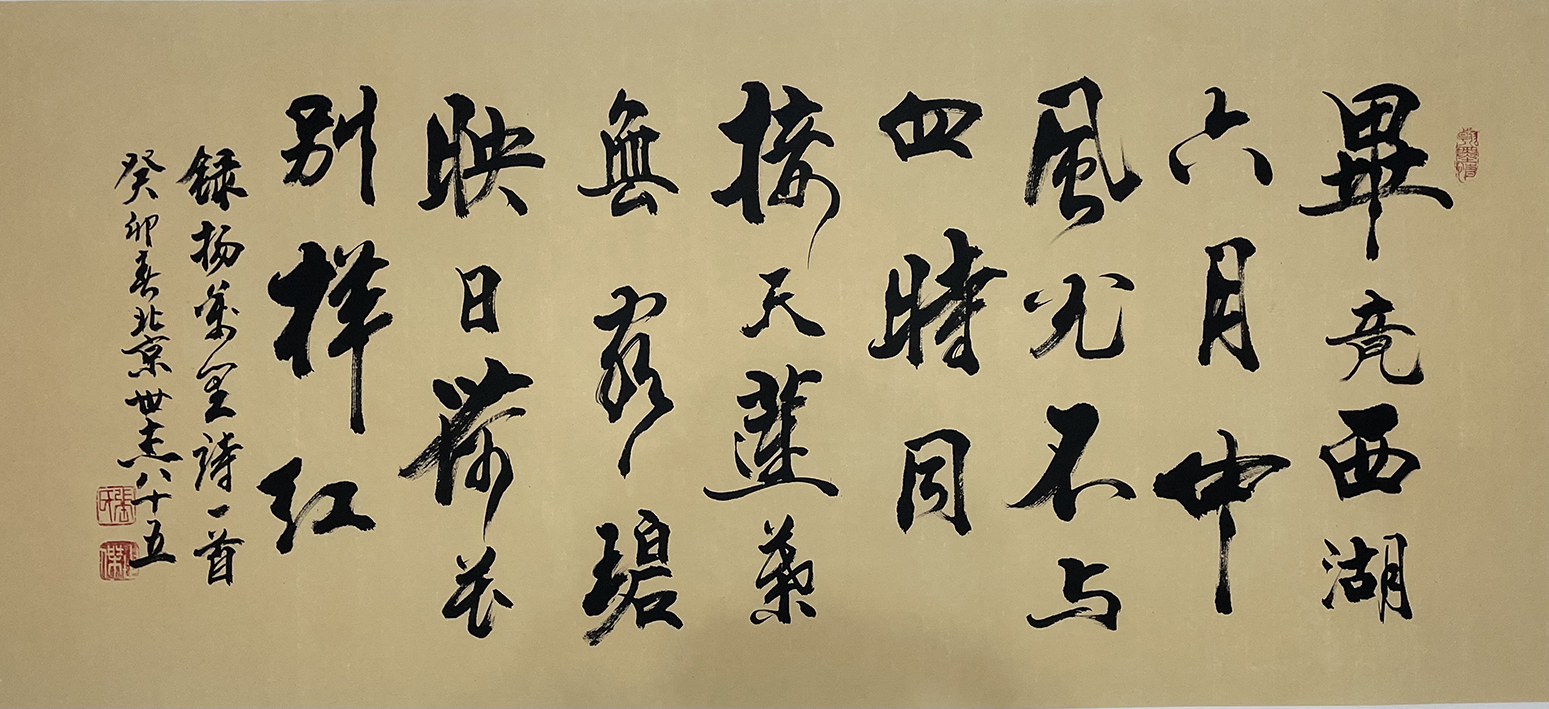 翰墨情
畢竟西湖
六月中
風光不与
四時同
接天蓮葉
無窮碧
映日荷花
别样红
録杨萬里詩一首
癸卯春北京世杰八十五
張氏